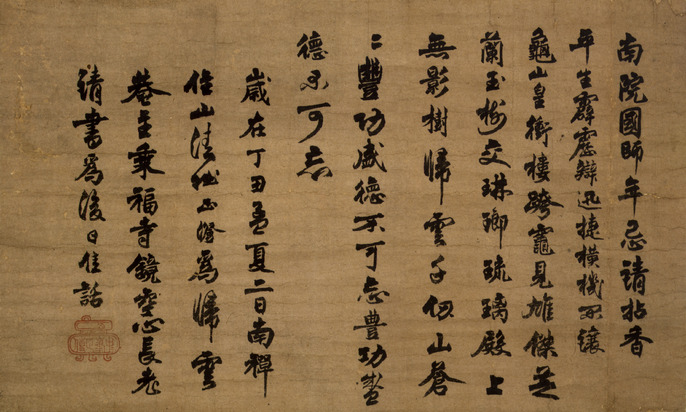 南院國師年忌請拈香
平生霹靂辯迅捷橫機不讓
龜山皇衝樓跨竈見雄傑芝
蘭玉樹交琳瑯琉璃殿上
無影樹歸雲千仞山蒼
〻豐功盛德不可忘豐功盛
德不可忘
歲在丁丑孟夏二日南禪
住山清拙正澄爲歸雲
菴主乘福寺鏡空心長老
請書爲後日佳話